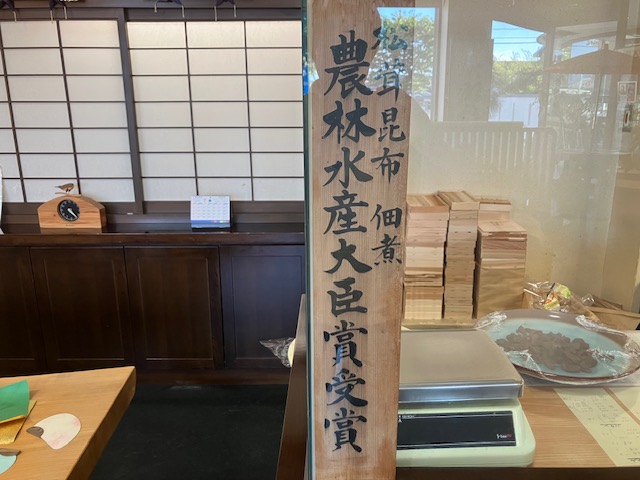 松茸 昆布 佃煮
農林水産大臣賞受賞